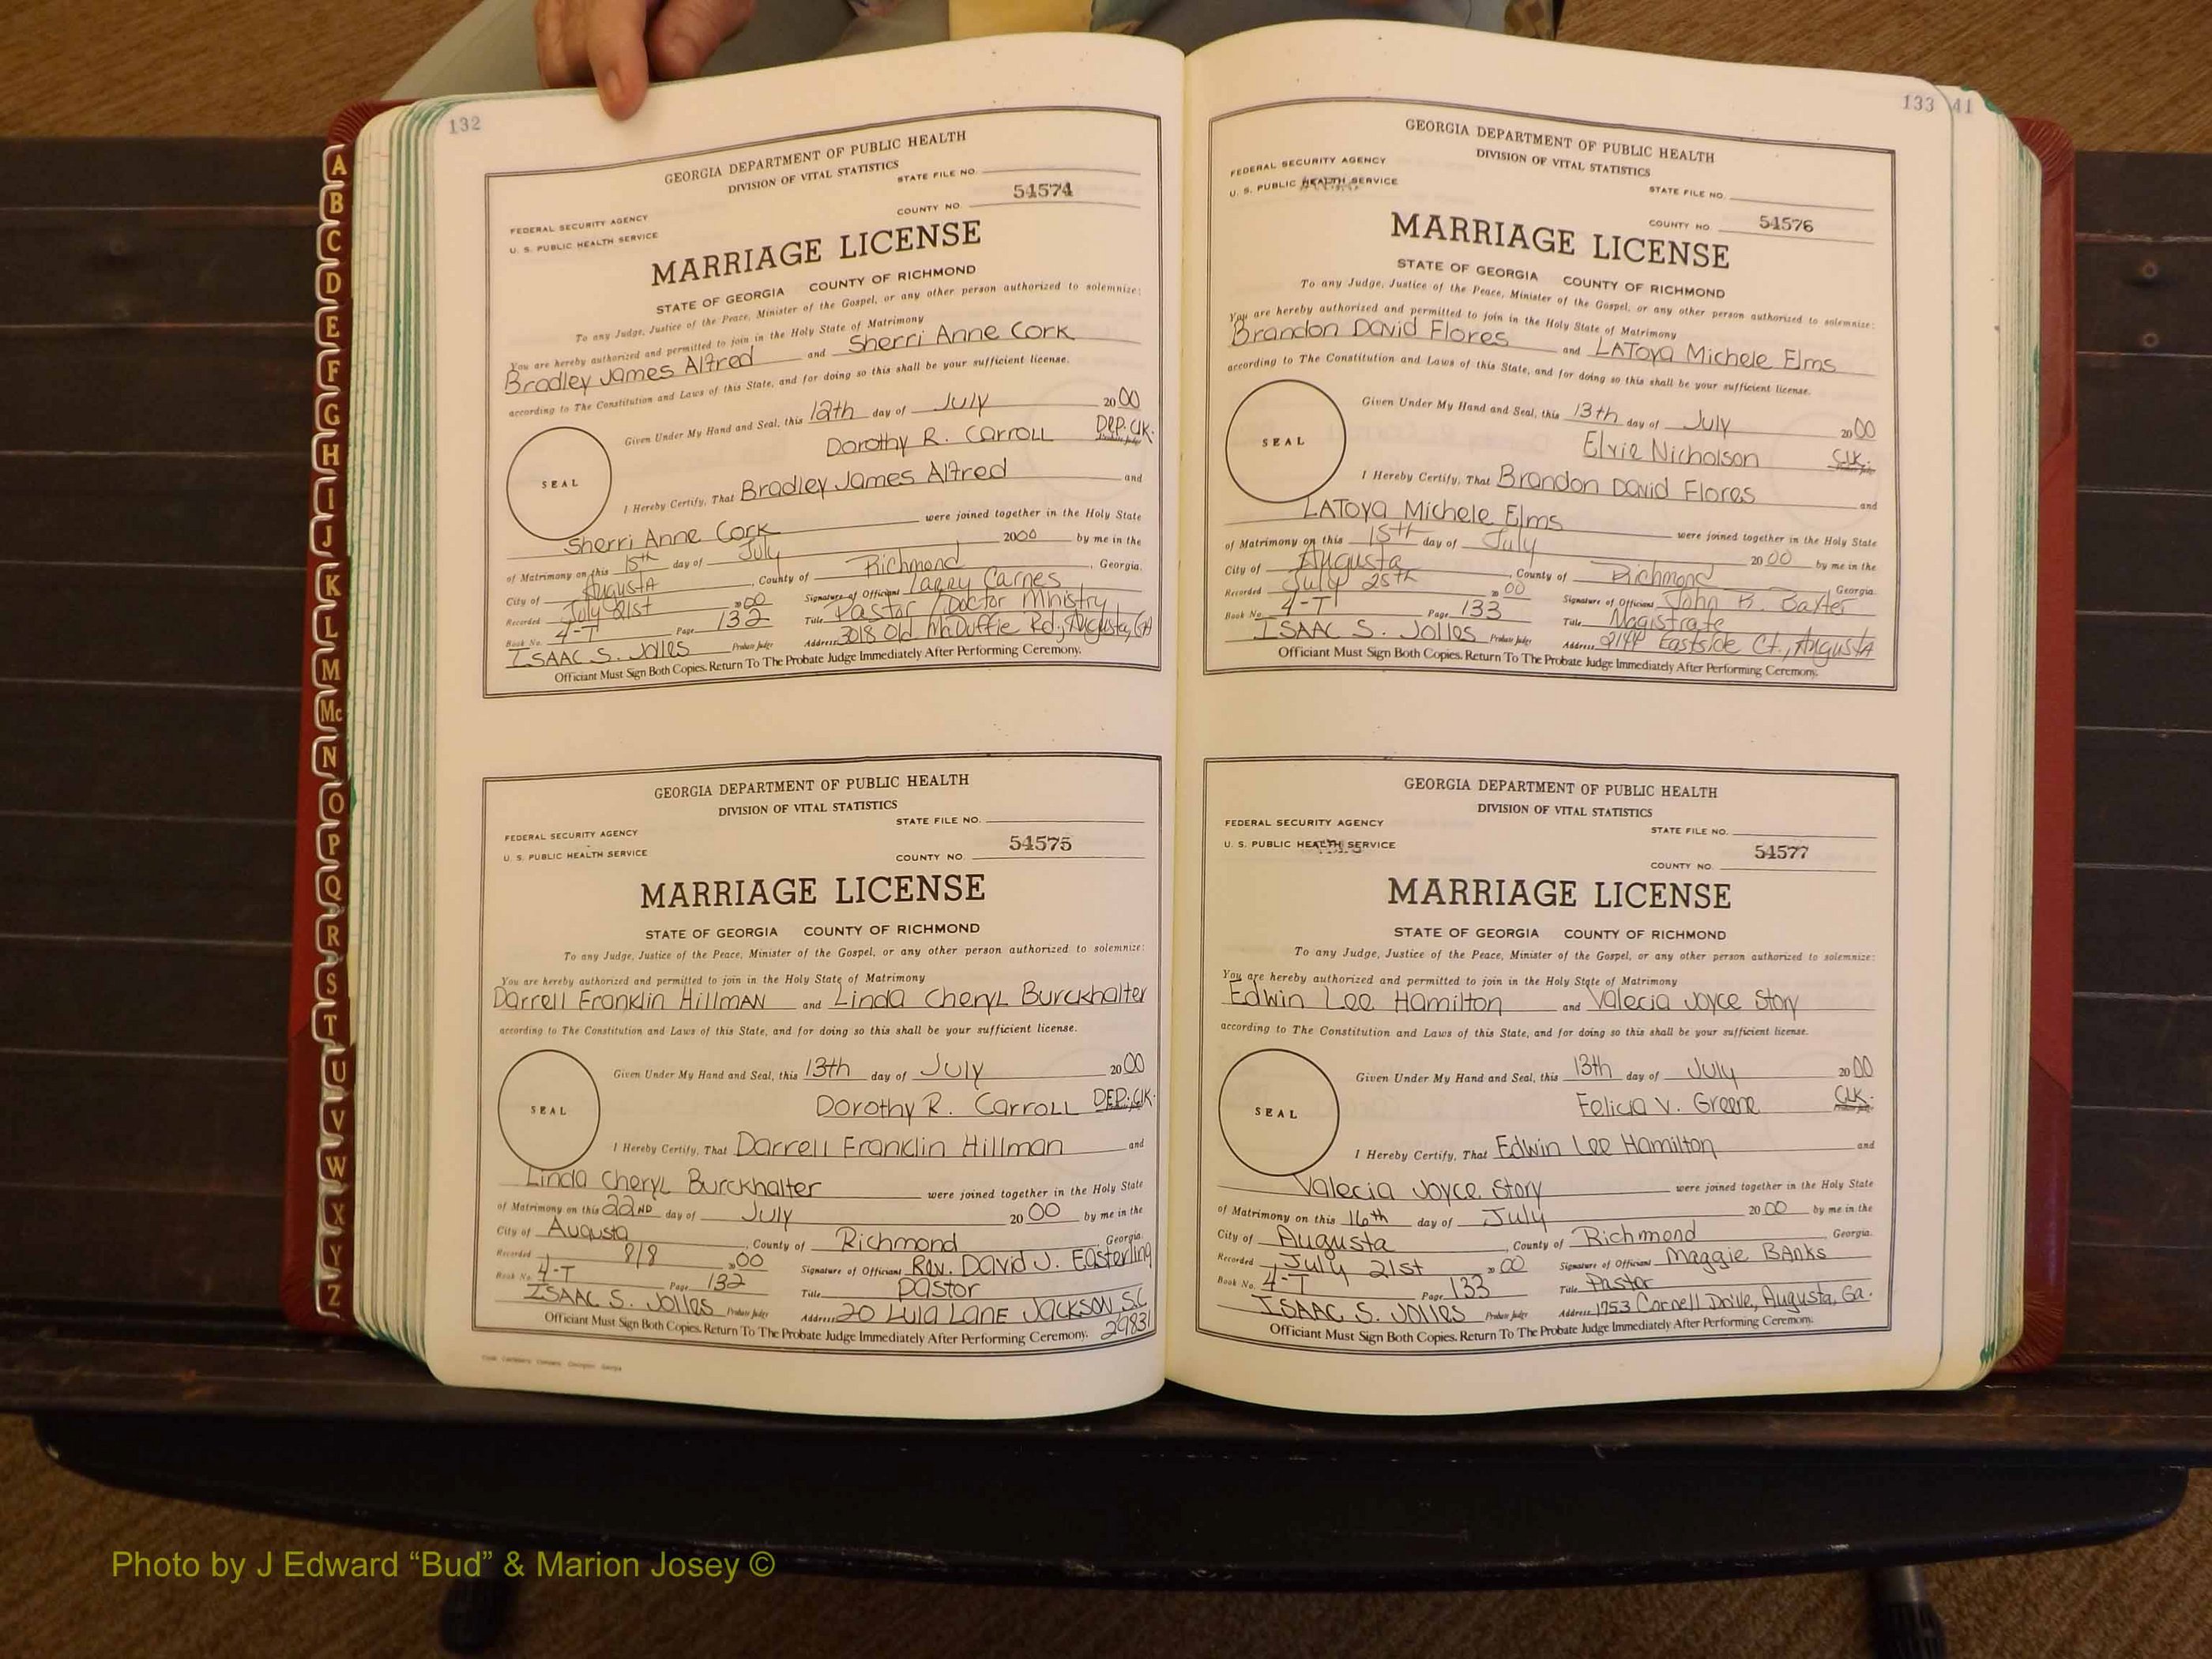 132
GEORGIA DEPARTMENT OF PUBLIC HEALTH
DIVISION OF VITAL STATISTICS
STATE FILE NO.
FEDERAL SECURITY AGENCY
U. S. PUBLIC HEALTH SERVICE
COUNTY NO. 54574
MARRIAGE LICENSE
STATE OF GEORGIA COUNTY OF RICHMOND
To any Judge, Justice of the Peace, Minister of the Gospel, or any other person authorized to solemnize:
You are hereby authorized and permitted to join in the Holy State of Matrimony
Bradley James Alfred and Sherri Anne Cork
according to The Constitution and Laws of this State, and for doing so this shall be your sufficient license.
Given Under My Hand and Seal, this 12th day of July 2000
Dorothy R. Carroll DEP. Clk.
SEAL
I Hereby Certify, That Bradley James Alfred and
Sherri Anne Cork were joined together in the Holy State
of Matrimony on this 15th day of July 2000 by me in the
City of Augusta, County of Richmond, Georgia.
Recorded July 21st 2000 Signature of Officiant Larry Carnes
Book No. 4-T Page 132 Title Pastor / Doctor Ministry
ISAAC S. Jolles Probate Judge Address 3018 Old McDuffie Rd., Augusta, GA
Officiant Must Sign Both Copies. Return To The Probate Judge Immediately After Performing Ceremony.
GEORGIA DEPARTMENT OF PUBLIC HEALTH
DIVISION OF VITAL STATISTICS
STATE FILE NO.
FEDERAL SECURITY AGENCY
U. S. PUBLIC HEALTH SERVICE
COUNTY NO. 54575
MARRIAGE LICENSE
STATE OF GEORGIA COUNTY OF RICHMOND
To any Judge, Justice of the Peace, Minister of the Gospel, or any other person authorized to solemnize:
You are hereby authorized and permitted to join in the Holy State of Matrimony
Darrell Franklin Hillman and Linda Cheryl Burckhalter
according to The Constitution and Laws of this State, and for doing so this shall be your sufficient license.
Given Under My Hand and Seal, this 13th day of July 2000
Dorothy R. Carroll DEP. Clk.
SEAL
I Hereby Certify, That Darrell Franklin Hillman and
Linda Cheryl Burckhalter were joined together in the Holy State
of Matrimony on this 22ND day of July 2000 by me in the
City of Augusta, County of Richmond Georgia.
Recorded 8/8 2000 Signature of Officiant Rev. David J. Easterling
Book No. 4-T Page 132 Title Pastor
ISAAC S. Jolles Probate Judge Address 20 Lula Lane Jackson, S.C. 29831
Officiant Must Sign Both Copies. Return To The Probate Judge Immediately After Performing Ceremony.
133 41
GEORGIA DEPARTMENT OF PUBLIC HEALTH
DIVISION OF VITAL STATISTICS
FEDERAL SECURITY AGENCY
U. S. PUBLIC HEALTH SERVICE
STATE FILE NO.
COUNTY NO. 54576
MARRIAGE LICENSE
STATE OF GEORGIA COUNTY OF RICHMOND
To any Judge, Justice of the Peace, Minister of the Gospel, or any other person authorized to solemnize:
You are hereby authorized and permitted to join in the Holy State of Matrimony
Brandon David Flores and LAToya Michele Elms
according to The Constitution and Laws of this State, and for doing so this shall be your sufficient license.
Given Under My Hand and Seal, this 13th day of July 2000
Elvie Nicholson Clk.
SEAL
I Hereby Certify, That Brandon David Flores and
LAToya Michele Elms were joined together in the Holy State
of Matrimony on this 15th day of July 2000 by me in the
City of Augusta, County of Richmond Georgia.
Recorded July 25th 2000 Signature of Officiant John B. Baxter
Book No. 4-T Page 133 Title Magistrate
ISAAC S. Jolles Probate Judge Address Eastside Ct., Augusta
Officiant Must Sign Both Copies. Return To The Probate Judge Immediately After Performing Ceremony.
GEORGIA DEPARTMENT OF PUBLIC HEALTH
DIVISION OF VITAL STATISTICS
FEDERAL SECURITY AGENCY
U. S. PUBLIC HEALTH SERVICE
STATE FILE NO.
COUNTY NO. 54577
MARRIAGE LICENSE
STATE OF GEORGIA COUNTY OF RICHMOND
To any Judge, Justice of the Peace, Minister of the Gospel, or any other person authorized to solemnize:
You are hereby authorized and permitted to join in the Holy State of Matrimony
Edwin Lee Hamilton and Valecia Joyce Story
according to The Constitution and Laws of this State, and for doing so this shall be your sufficient license.
Given Under My Hand and Seal, this 13th day of July 2000
Felicia V. Greene Clk.
SEAL
I Hereby Certify, That Edwin Lee Hamilton and
Valecia Joyce Story were joined together in the Holy State
of Matrimony on this 16th day of July 2000 by me in the
City of Augusta, County of Richmond, Georgia.
Recorded July 21st 2000 Signature of Officiant Maggie Banks
Book No. 4-T Page 133 Title Pastor
ISAAC S. Jolles Probate Judge Address 1753 Cornell Drive, Augusta, Ga.
Officiant Must Sign Both Copies. Return To The Probate Judge Immediately After Performing Ceremony.
A
B
C
D
E
F
G
H
I
J
K
L
M
Mc
N
O
P
Q
R
S
T
U
V
W
X
Y
Z
Photo by J Edward “Bud” & Marion Josey ©